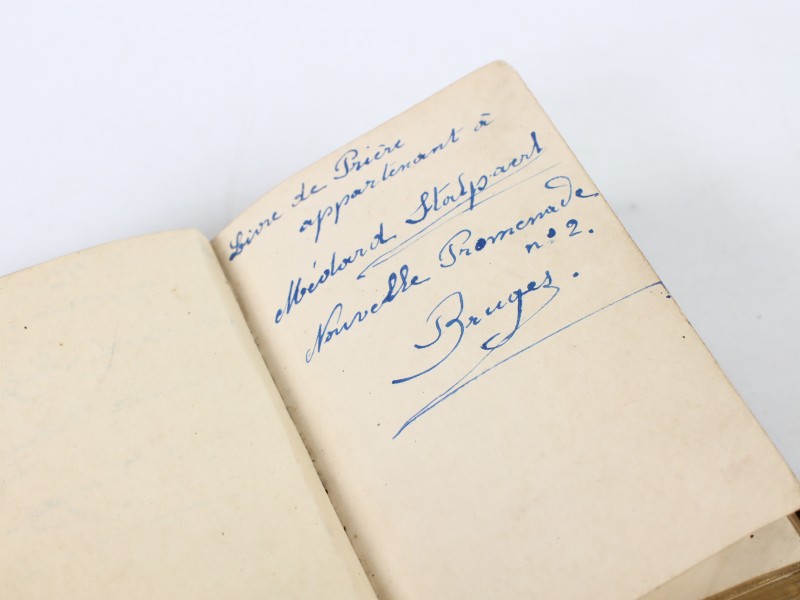 Livre de Prière
appartenant à
Médard Stalpaert
Nouvelle Promenade
n° 2.
Bruges.